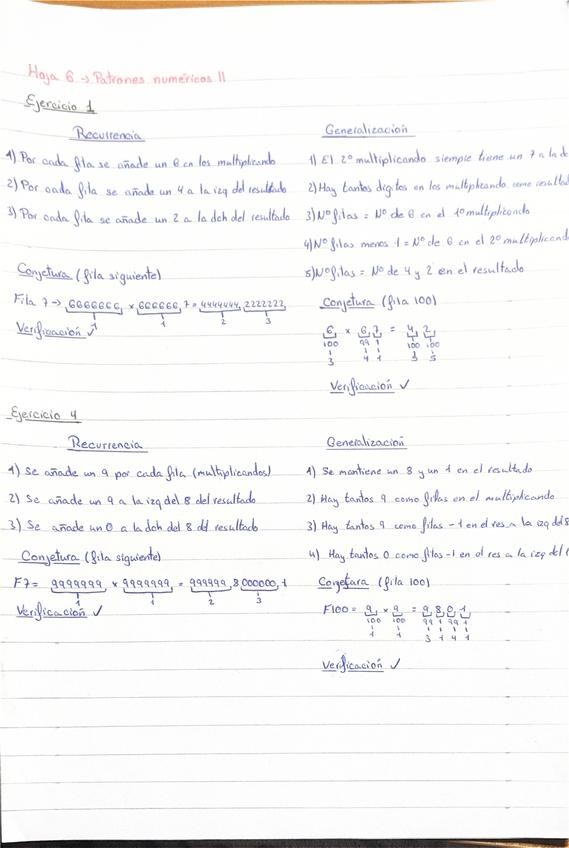 Hoja 6 → Patrones numéricos II
Ejercicio 1
Recurrencia
1) Por cada fila se añade un 6 en los multiplicando
2) Por cada fila se añade un 4 a la izq del resultado
3) Por cada fila se añade un 2 a la dch del resultado
Conjetura (fila siguiente)
Fila 7 → 6666666 × 666666,7 = 4444444,2222222
1 1 2 3
Verificación ✓
Generalización
1) El 2º multiplicando siempre tiene un 7 a la d
2) Hay tantos dígitos en los multiplicando como resultad
3) Nº filas = Nº de 6 en el 1º multiplicando
4) Nº filas menos 1 = Nº de 6 en el 2º multiplicand
5) Nº filas = Nº de 4 y 2 en el resultado
Conjetura (fila 100)
6 × 6 7 = 4 2
100 99 1 100 100
3 4 1 5 5
Verificación ✓
Ejercicio 4
Recurrencia
1) Se añade un 9 por cada fila (multiplicandos)
2) Se añade un 9 a la izq del 8 del resultado
3) Se añade un 0 a la dch del 8 del resultado
Conjetura (fila siguiente)
F7 = 9999999 × 9999999 = 999999,8000000,1
1 1 2 3
Verificación ✓
Generalización
1) Se mantiene un 8 y un 1 en el resultado
2) Hay tantos 9 como filas en el multiplicando
3) Hay tantos 9 como filas -1 en el res a la izq del 8
4) Hay tantos 0 como filas -1 en el res a la izq del
Conjetura (fila 100)
F100 = 9 × 9 = 9 8 0 1
100 100 99 1 99 1
1 1 3 1 4 1
Verificación ✓